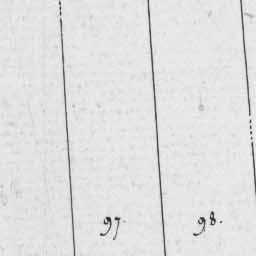 97. 98.